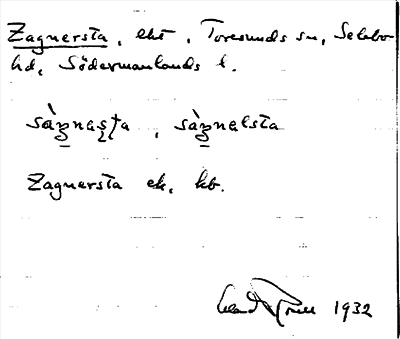 Zagnersta, ekt, Toresunds sn, Selebo
hd, Södermanlands l.
sàgnasta, sàgnelsta
Zagnersta ek, kb.
1932